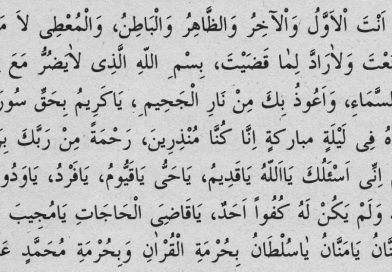 اَنْتَ الْاَوَّلُ وَالْاٰخِرُ وَالظَّاهِرُ وَالْبَاطِنُ، وَالْمُعْطِى لاَ
وَلاَرَادَّ لِمٰا قَضَيْتَ، بِسْمِ اللّٰهِ الَّذِى لاَيَضُرُّ مَعَ
السَّمَاءِ، وَاَعُوذُ بِكَ مِنْ نَارِ الْجَحِيمِ، يَاكَرِيمُ بِحَقِّ
فِى لَيْلَةٍ مباركةٍ اِنَّا كُنَّا مُنْذِرِينَ، رَحْمَةً مِنْ رَبِّكَ
اِنِّى اَسْئَلُكَ يَااَللّٰهُ يَاقَدِيمُ، يَاحَىُّ يَاقَيُّومُ، يَافَرْدُ، يَاوَدُو
وَلَمْ يَكُنْ لَهُ كُفُواً اَحَدٌ، يَاقَاضِىَ الْحَاجَاتِ يَامُجِيبَ
يَامَنَّانُ يٰاسُلْطَانُ بِحُرْمَةِ الْقُرْاٰنِ وَبِحُرْمَةِ مُحَمَّدٍ